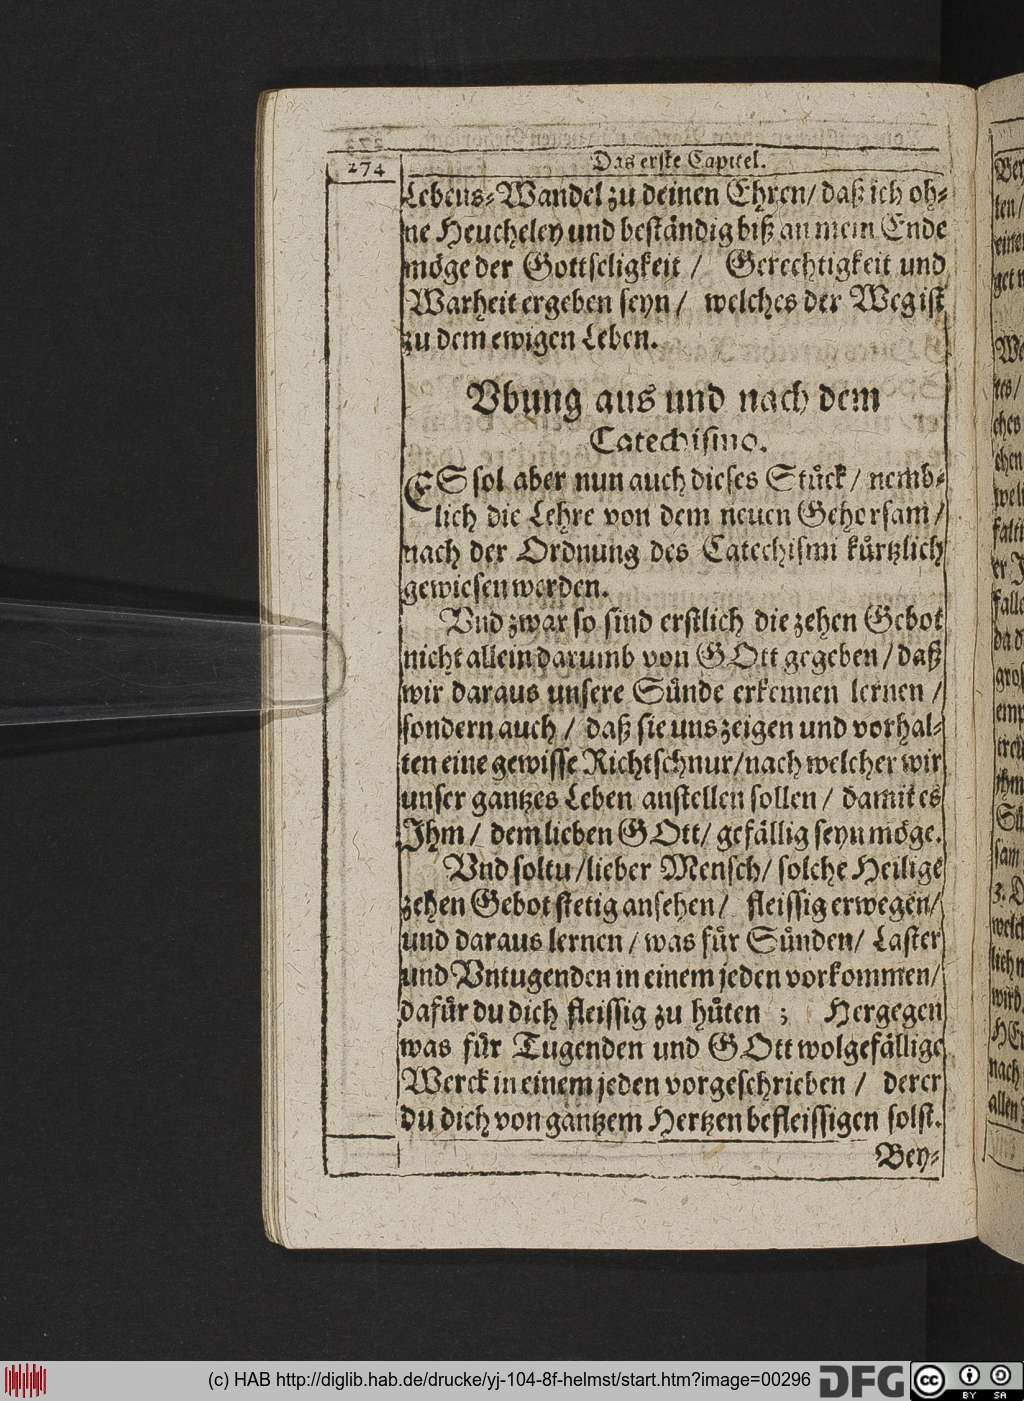 274
Das erste Capitel.
Lebens-Wandel zu deinen Ehren/ daß ich oh-
ne Heucheley und beständig biß an mein Ende
möge der Gottseligkeit / Gerechtigkeit und
Warheit ergeben seyn / welches der Weg ist
zu dem ewigen Leben.
Vbung aus und nach dem
Catechismo.
ES sol aber nun auch dieses Stuͤck / nemb-
lich die Lehre von dem neuen Gehorsam /
nach der Ordnung des Catechismi kuͤrtzlich
gewiesen werden.
Vnd zwar so sind erstlich die zehen Gebot
nicht allein darumb von GOtt gegeben / daß
wir daraus unsere Suͤnde erkennen lernen /
sondern auch / daß sie uns zeigen und vorhal-
ten eine gewisse Richtschnur/nach welcher wir
unser gantzes Leben anstellen sollen / damit es
Ihm / dem lieben GOtt/ gefällig seyn möge.
Vnd soltu /lieber Mensch/ solche Heilige
zehen Gebot stetig ansehen / fleissig erwegen/
und daraus lernen / was fuͤr Suͤnden/ Laster
und Vntugenden in einem jeden vorkommen/
dafuͤr du dich fleissig zu huͤten ; Hergegen
was fuͤr Tugenden und GOtt wolgefällige
Werck in einem jeden vorgeschrieben / derer
du dich von gantzem Hertzen befleissigen solst.
Bey-
(c) HAB http://diglib.hab.de/drucke/yj-104-8f-helmst/start.htm?image=00296
DFG
cc
BY SA